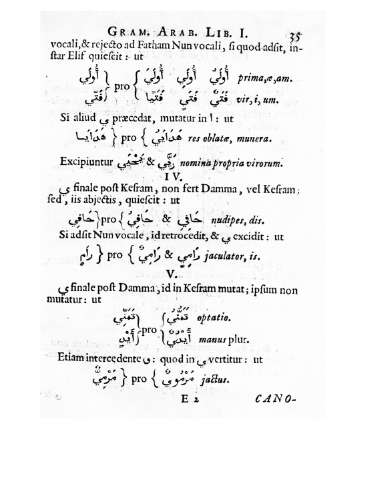 GRAM. ARAB. LIB. I. 35
vocali, & rejecto ad Fatham Nun vocali, si quod adsit, in-
star Elif quiescit : ut
pro primæ, æ, am.
vir, i, um.
Si aliud ي præcedat, mutatur in ا : ut
pro res oblatæ, munera.
Excipiuntur & nomina propria virorum.
IV.
ي finale post Kesram, non fert Damma, vel Kesram;
sed, iis abjectis, quiescit : ut
pro & nudipes, dis.
Si adsit Nun vocale, id retrocedit, & ي excidit : ut
رَامٍ pro & jaculator, is.
V.
ي finale post Damma, id in Kesram mutat; ipsum non
mutatur : ut
optatio.
pro
manus plur.
Etiam intercedente و : quod in ي vertitur : ut
pro jactus.
E 2 CANO-